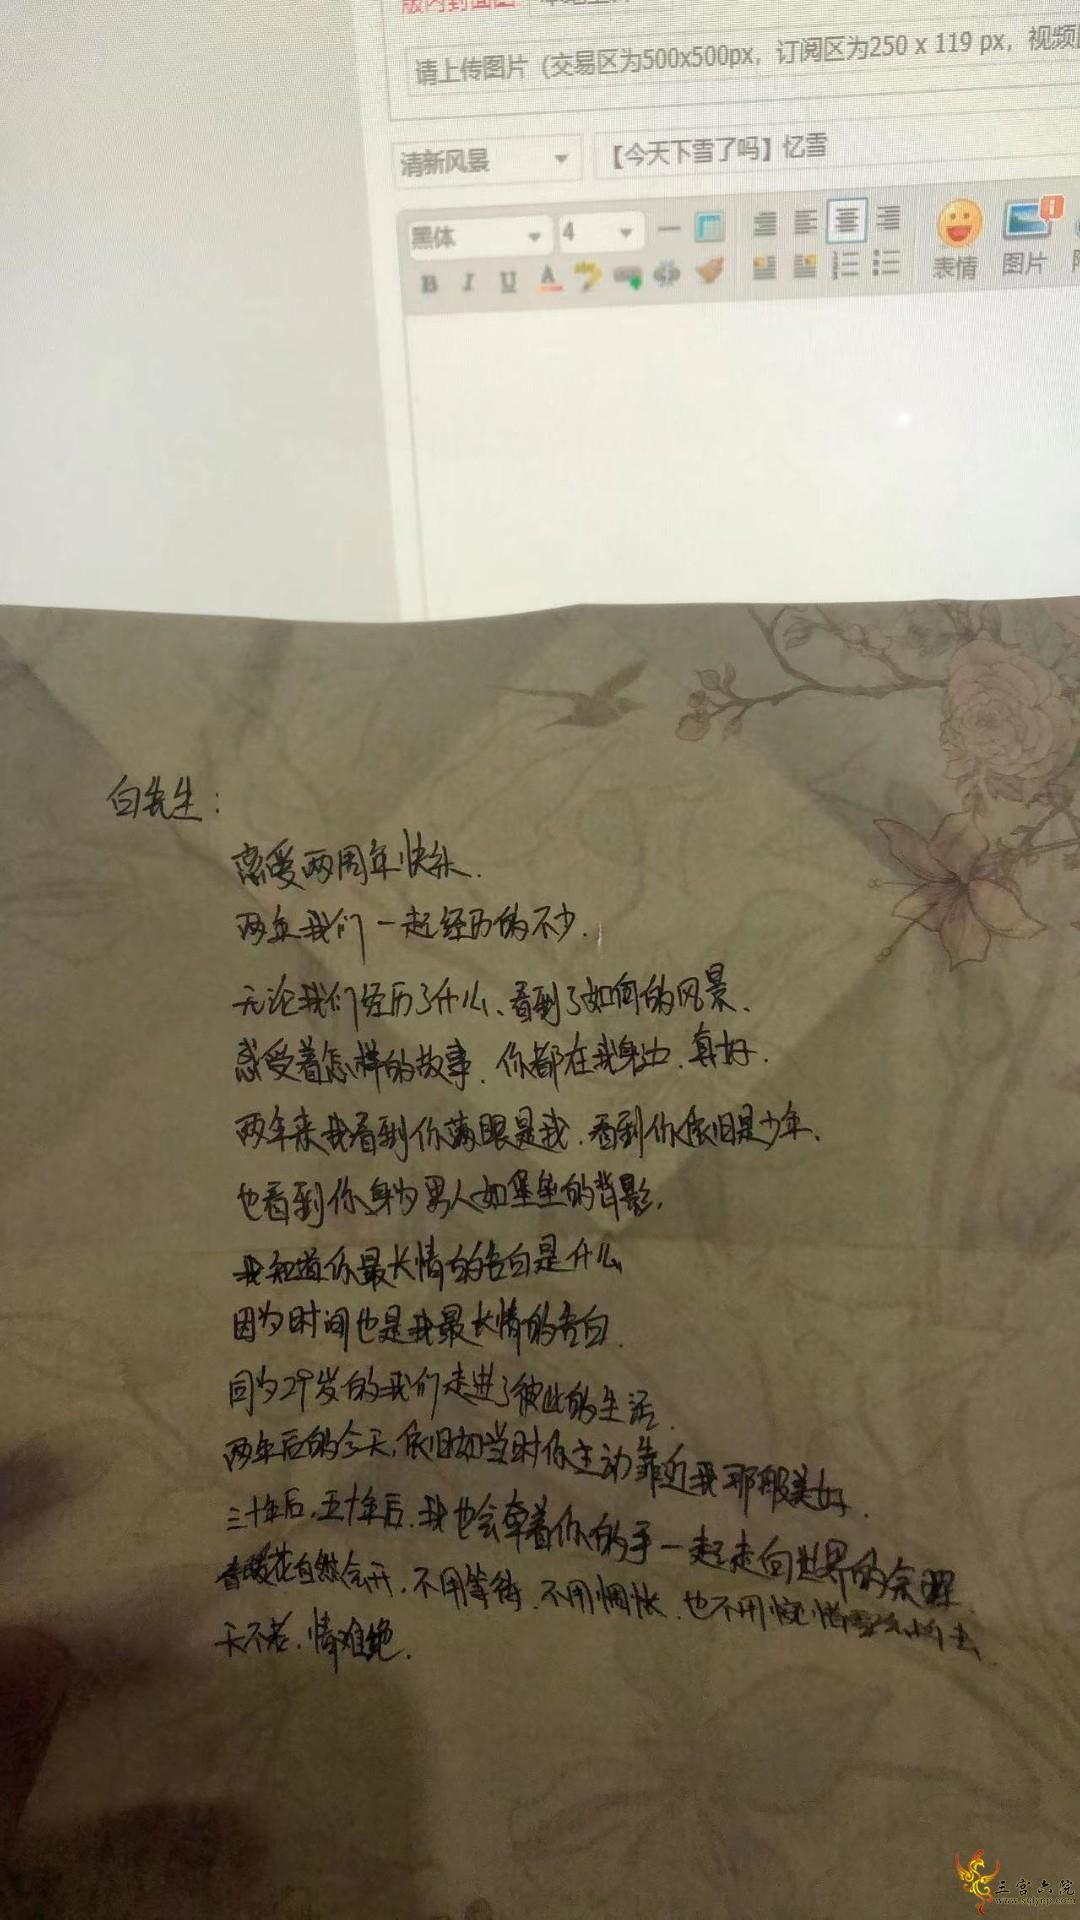 版内封面图
请上传图片（交易区为500x500px，订阅区为250 x 119 px，视频
清新风景
【今天下雪了吗】忆雪
黑体
4
B I U A
表情
图片
白先生：
恋爱两周年快乐.
两年我们一起经历的不少.
无论我们经历了什么、看到了如何的风景、
感受着怎样的故事.你都在我身边.真好.
两年来我看到你满眼是我.看到你依旧是少年、
也看到你身为男人如堡垒的背影.
我知道你最长情的告白是什么
因为时间也是我最长情的告白.
同为29岁的我们走进了彼此的生活.
两年后的今天,依旧如当时你主动靠近我那般美好.
三十年后.五十年后.我也会牵着你的手一起走向世界的余
春暖花自然会开.不用等待.不用惆怅.也不用惋惜
天不老.情难绝.
三宫六院